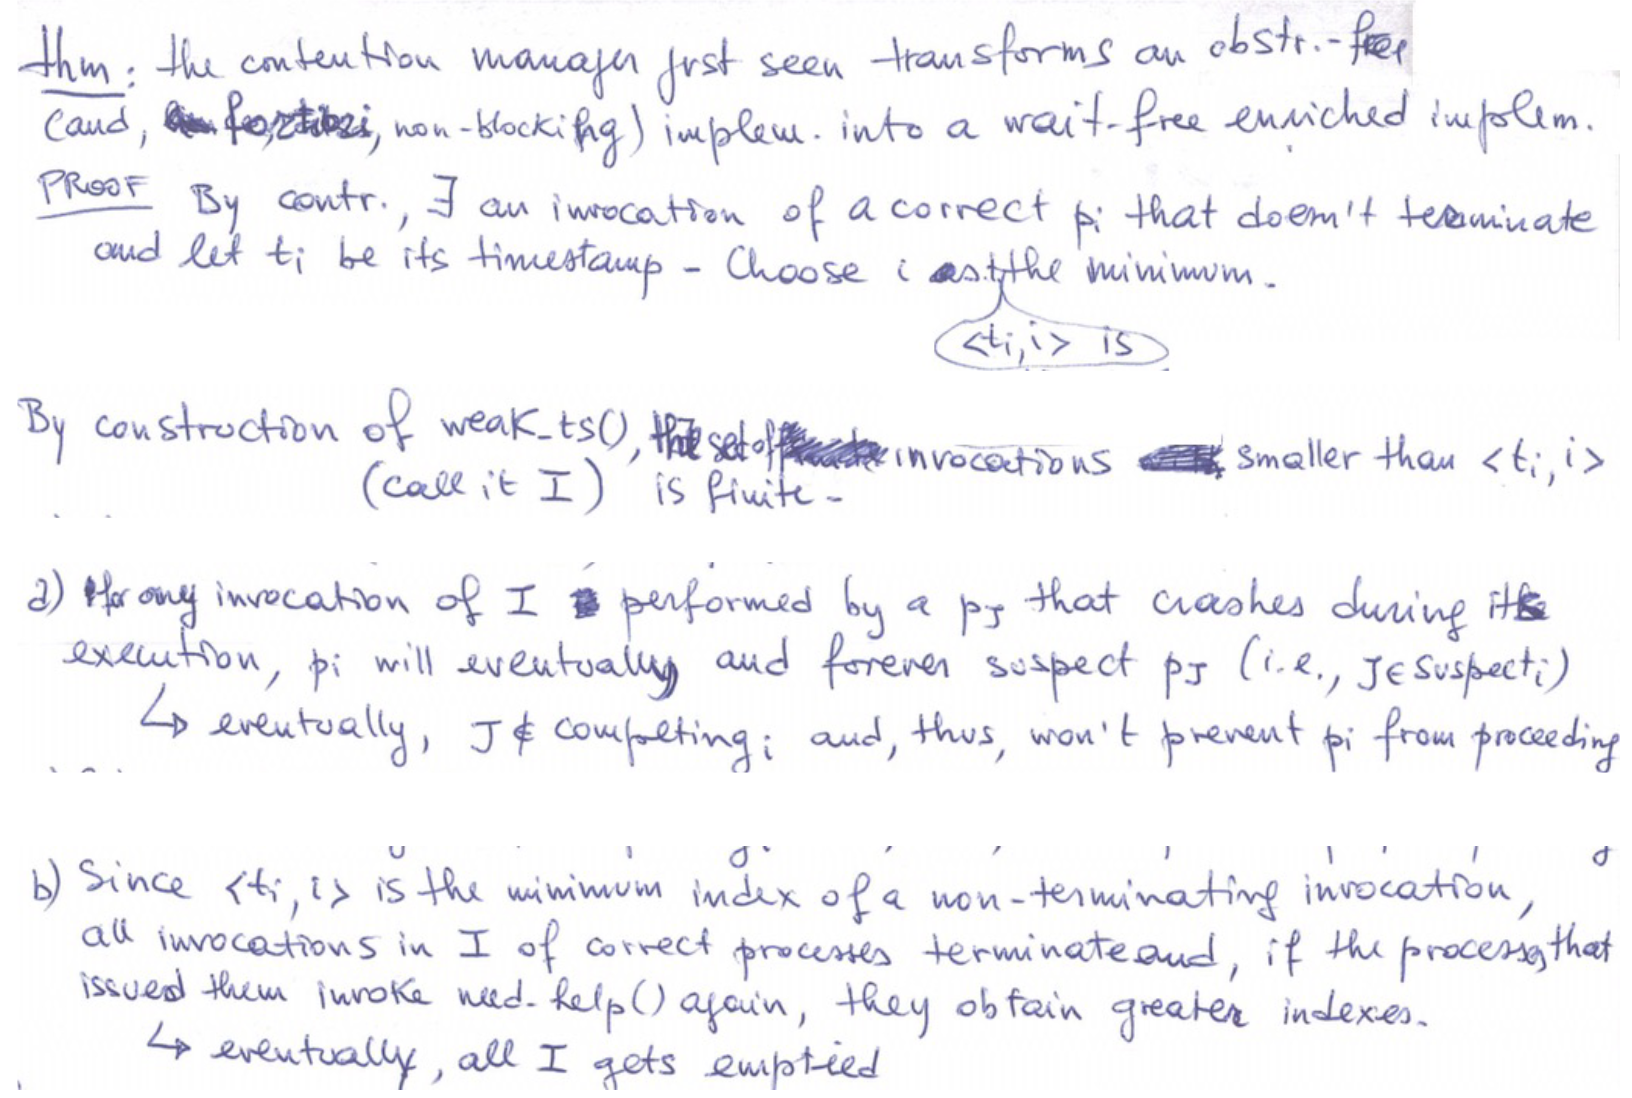 thm: the contention manager just seen transforms an obstr.-free
(and, non-blocking) implem. into a wait-free enriched implem.
PROOF By contr., ∃ an invocation of a correct pi that doesn't terminate
and let ti be its timestamp - Choose i as t. the minimum.
<ti,i> is
By construction of weak_ts(), the set of invocations smaller than <ti,i>
(call it I) is finite -
a) for any invocation of I performed by a pJ that crashes during its
execution, pi will eventually and forever suspect pJ (i.e., J∈Suspecti)
↳ eventually, J ∉ competingi and, thus, won't prevent pi from proceeding
b) Since <ti,i> is the minimum index of a non-terminating invocation,
all invocations in I of correct processes terminate and, if the processes that
issued them invoke need-help() again, they obtain greater indexes.
↳ eventually, all I gets emptied